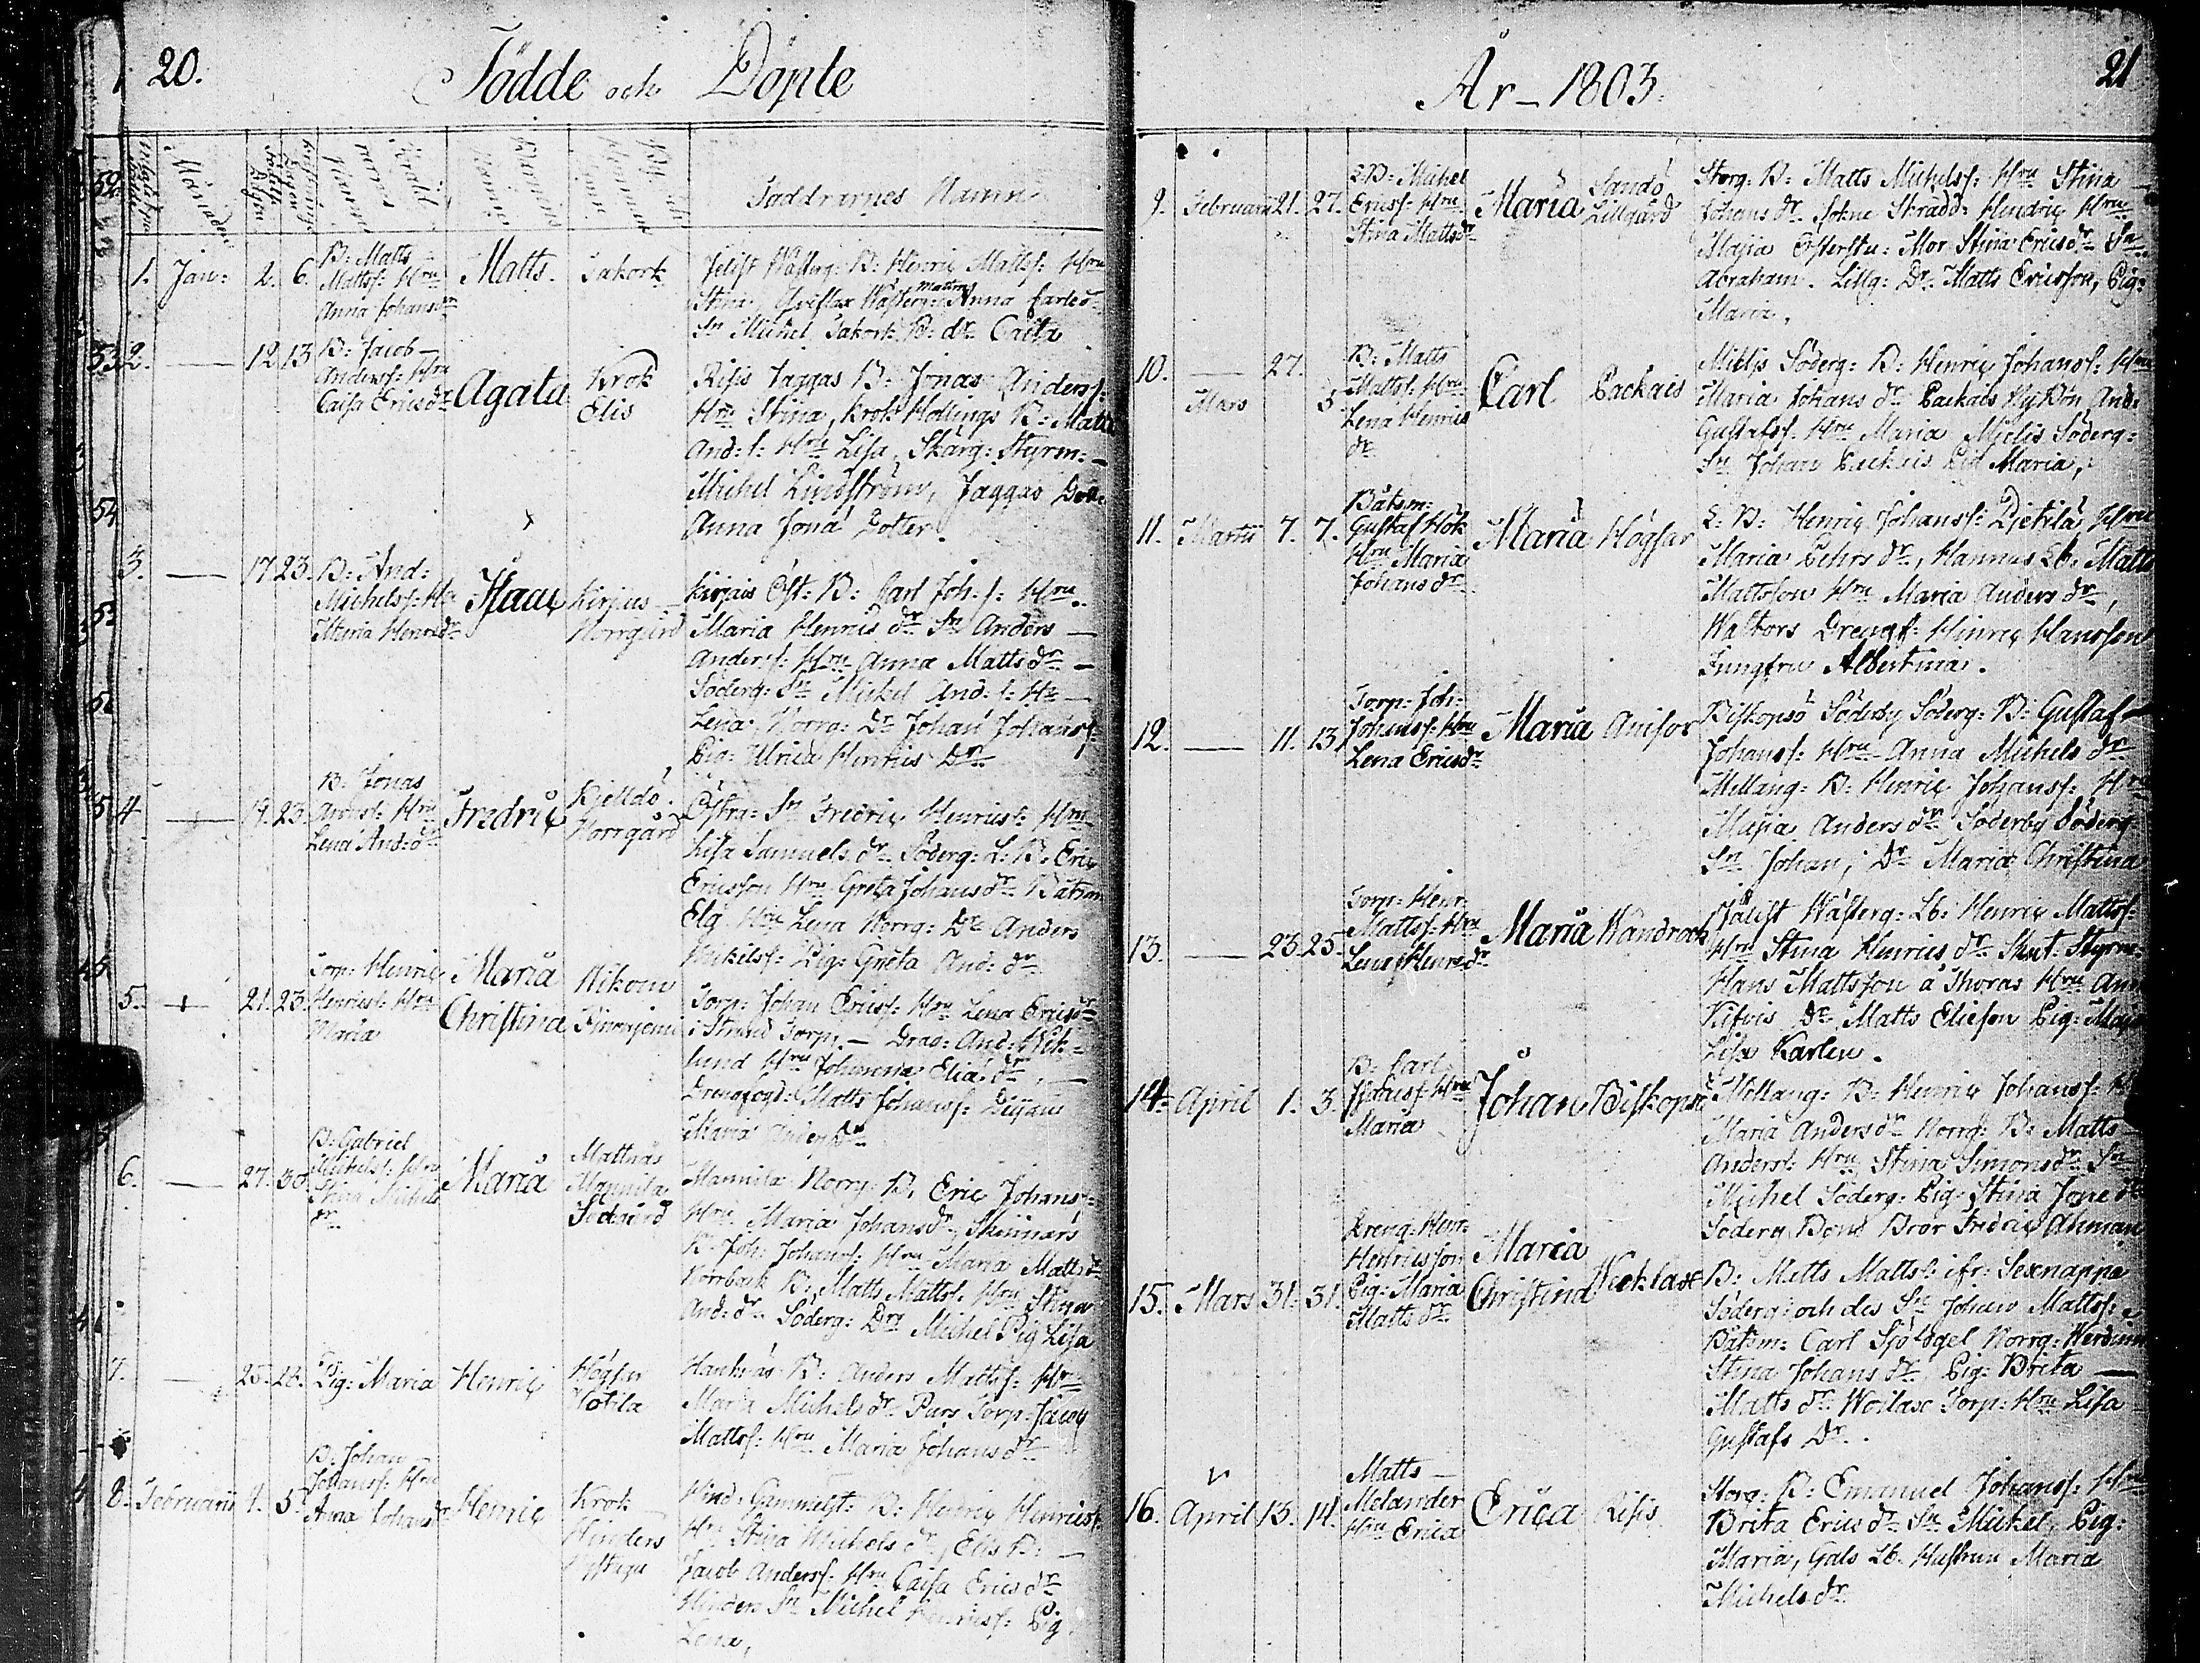 20.
Födde och Döpte
Månaden
Faddrarnes Namn
1. Jan: 2. 6.
B: Matts
Mattsf: Hru
Anna Johansdr
Matts.
Stina,
Anna Carlsdr
Sn Michel Dr Caisa
2. — 12. 13
B: Jacob
Andersf: Hru
Caisa Ericsdr
Agata
Krok
Elis
Risis Jaggas B: Jonas Andersf:
Hru Stina, Krok Hollings B: Matts
And: f: Hru Lisa, Skärg: Styrm:
Michel Lindström, Jaggas
Anna Jona Dotter.
3. — 17. 23.
B: And:
Michelsf: Hru
Maria Henricsdr
Isaac
Kirjais
Norrgård
Kirjais Öst: B: Carl Joh: f: Hru
Maria Henrics dr Sn Anders —
Andersf: Hru Anna Matts dr —
Söderg: Sn Michel And: f: Hu —
Lena, Norrg: Dr Johan Johansf:
Pig: Ulrica Henrics Dr
4. — 19. 23.
B: Jonas
Andersf: Hru
Lena And: dr
Fredric
Kjeldö
Norrgård
Östrg: Sn Fredric Henricsf: Hru
Lisa Samuels dr Söderg: L: B: Eric
Ericsson Hru Greta Johans dr Båtsm
Elg Hru Lena Norrg: Dr Anders
Michelsf: Pig: Greta And: dr
5. — 21. 23.
Torp: Henric
Henricsf: Hru
Maria
Maria
Christina
Torp: Johan Ericsf: Hru Lena Ericsdr
i Strand Torp, — Drag: And: Wik-
lund Hru Johanna Elia dr, —
Matts Johansf:
Maria Anders dr
6. — 27. 30.
B: Gabriel
Michelsf: Hru
Stina Michels
dr
Maria
Mattnäs
Mannila
Södergård
Mannila Norrg: B. Eric Johansf:
Hru Maria Johansdr, Skinnars
B. Joh: Johansf: Hru Maria Matts dr
Norrback B: Matts Mattsf: Hru Stina
And: dr Söderg: Drg Michel Pig Lisa
7. — 25. 28.
Pig: Maria
Henric
Högsar
B: Anders Mattsf: Hru
Maria Michels dr Pars Torp: Jacob
Mattsf: Hru Maria Johans dr
8. Februarii 1. 5.
B: Johan
Johansf: Hru
Anna Johans dr
Henric
Krok
Hinders
Hind: B: Henric Henricsf:
Hru Stina Michels dr, Elis B: —
Jacob Andersf: Hru Caisa Erics dr
Hinders Sn Michel Henricsf: Pig
Lena,
År – 1803.
21
9. Februarii 21. 27.
L: B: Michel
Ericsf: Hru
Stina Matts dr
Maria
Sandö
Lillgård
Storg: B: Matts Michelsf: Hru Stina
Johans dr Sokne Skrädd: Hindric Hru
Majia Mor Stina Erics dr
Abraham. Lillg: Dr: Matts Ericsson, Pig:
Maria,
10. — 27.
Mars 5
B: Matts
Mattsf: Hru
Lena Henrics
dr
Carl
Packais
Mielis Söderg: B: Henric Johansf: Hru
Maria Johans dr Packais And:
Gustafsf. Hru Maria Mjelis Söderg:
Sn Johan Packais Pig Maria,
11. Martii 7. 7.
Båtsm:
Gustaf Hök
Hru Maria
Johans dr
Maria
Högsar
L: B: Henric Johansf: Hru
Maria Pehrs dr, Hannus Lb: Matts
Mattsson Hru Maria Anders dr,
Walfors Drengf: Hinric Hansson
Jungfru Albertina.
12. — 11. 13
Torp: Joh:
Johansf: Hru
Lena Ericsdr
Maria
Anisor
Biskopsö Söderby Söderg: B: Gustaf
Johansf: Hru Anna Michels dr
Mellang: B: Henric Johansf: Hru
Majia Anders dr Söderby Söderg:
Sn Johan, Dr Maria Christina
13. — 23. 25.
Torp: Henr:
Mattsf: Hru
Lena Henricsdr
Maria
Wandrock
Wästerg: Lb: Henric Mattsf:
Hru Stina Henrics dr Skut: Styrm
Hans Mattsson å Thoras Hru Ann
Dr Matts Eliesson Pig: Maja
Lisa Karlen.
14. April 1. 3.
B: Carl
Hru
Maria
Johan
Biskopsö
Mellang: B: Henric Johansf: H
Maria Anders dr Norrg: B: Matts
Andersf: Hru Stina Simons dr Sn
Michel Söderg: Pig: Stina Jone dr
Söderg Bond Bror Fredric Åhman
15. Mars 31. 31.
Dreng: Henr:
Henricsson
Pig: Maria
Matts dr
Maria
Christina
B: Matts Mattsf: ifr: Sexnappa
Söderg: och des Sn Johan Mattsf:
Båtsm: Carl Sjöfogel Norrg: Werdinn
Stina Johans dr Pig: Brita —
Matts dr Torp: Hru Lisa
Gustafs Dr.
16. April 13. 14.
Matts —
Melander
Hru Erica
Erica
Risis
Storg: B: Emanuel Johansf: Hru
Brita Erics dr Sn Michel, Pig:
Maria, Gals Lb. Hustru Maria
Michels dr